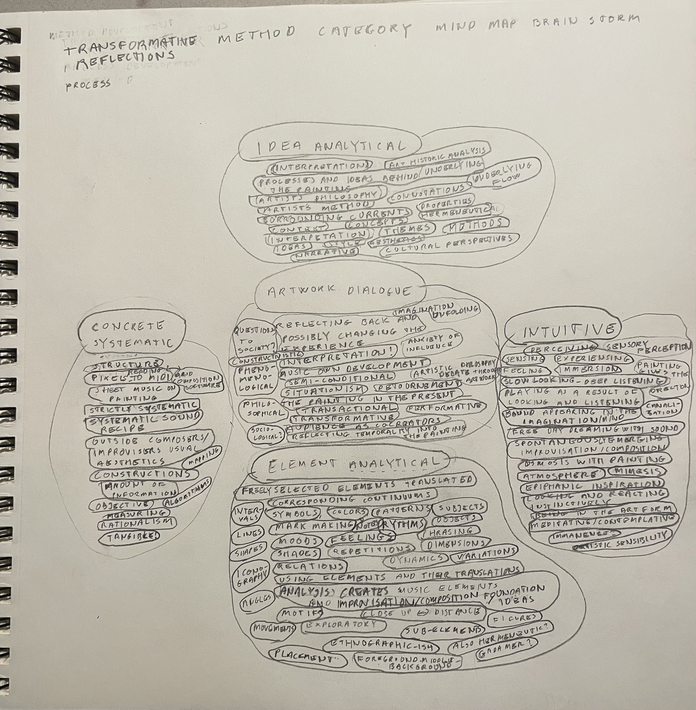 TRANSFORMATIVE METHOD CATEGORY MIND MAP BRAIN STORM
REFLECTIONS
PROCESS
IDEA ANALYTICAL
INTERPRETATION ART HISTORIC ANALYSIS
PROCESSES AND IDEAS BEHIND/UNDERLYING
THE PAINTING
UNDERLYING
FLOW
ARTISTS PHILOSOPHY CONNOTATIONS
ARTISTS METHOD PROPERTIES
SURROUNDING CURRENTS HERMENEUTICAL
CONTEXT CONCEPTS
INTERPRETATION THEMES METHODS
IDEAS STYLE AESTHETICS
NARRATIVE CULTURAL PERSPECTIVES
ARTWORK DIALOGUE
QUESTIONS
TO
SOCIETY?
REFLECTING BACK AND
IMAGINATION
UNFOLDING
POSSIBLY CHANGING THE
EXPERIENCE
ANXIETY OF
INFLUENCE
CONSTRUCTIVISTIC INTERPRETATION!
PHENO-
MENO-
LOGICAL
MUSIC OWN DEVELOPMENT
SEMI-CONDITIONAL
ARTISTIC PHILOSOPHY
DEBATE THROUGH
ARTWORK
SITUATIONISM DETOURNEMENT
PHILO-
SOPHICAL
THE PAINTING IN THE PRESENT
TRANSACTIONAL PERFORMATIVE
TRANSFORMATIVE
SOCIO-
LOGICAL
AUDIENCE AS COCREATORS
REFLECTING TEMPORALITY INTO
THE PAINTING
CONCRETE
SYSTEMATIC
STRUCTURE
READING
PIXELS TO MIDI
GRID
COMPOSITION
SHEET MUSIC ON
PAINTING
STRICTLY SYSTEMATIC
SYSTEMATIC SOUND
RECIPE
OUTSIDE COMPOSERS/
IMPROVISERS USUAL
AESTHETICS MAPPING
CONSTRUCTIONS
AMOUNT OF
INFORMATION
OBJECTIVE ALGORITHMS
MEASURING
RATIONALISM
TANGIBLE
INTUITIVE
PERCEIVING SENSORY PERCEPTION
SENSING EXPERIENCING
FEELING IMMERSION
PAINTING
GIVES THE
DIRECTION
SLOW LOOKING - DEEP LISTENING
PLAYING AS A RESULT OF
LOOKING AND LISTENING
CANALI-
SATION
SOUND APPEARING IN THE
IMAGINATION/MIND
FREE DAY DREAMING WITH SOUND
SPONTANEOUSLY EMERGING
IMPROVISATION/COMPOSITION
OSMOSIS WITH PAINTING
ATMOSPHERE MIMESIS
EPIPHANIC INSPIRATION
LOOKING AND REACTING
INSTINCTIVELY
IN THE ART FORM
MEDITATIVE/CONTEMPLATIVE
IMMANENCE
ARTISTIC SENSIBILITY
ELEMENT ANALYTICAL
FREELY SELECTED ELEMENTS TRANSLATED
CORRESPONDING CONTINUUMS
INTER-
VALS
SYMBOLS COLORS PATTERNS SUBJECTS
LINES
MARK MAKING RYTHMS OBJECTS
MOODS FEELINGS PHRASING
SHAPES
SHADES REPETITIONS DIMENSIONS
DYNAMICS VARIATIONS
ICONO-
GRAPHY
RELATIONS
USING ELEMENTS AND THEIR TRANSLATIONS
ANGLES
ANALYSIS CREATES MUSIC ELEMENTS
AND IMPROVISATION/COMPOSITION FOUNDATION
IDEAS
MOTIFS CLOSE UP ↔ DISTANCE FIGURES
MOVEMENTS EXPLORATORY SUB-ELEMENTS
ETHNOGRAPHIC-ISH ALSO HERMENEUTIC?
GADAMER?
PLACEMENT FOREGROUND-MIDDLE-
BACKGROUND